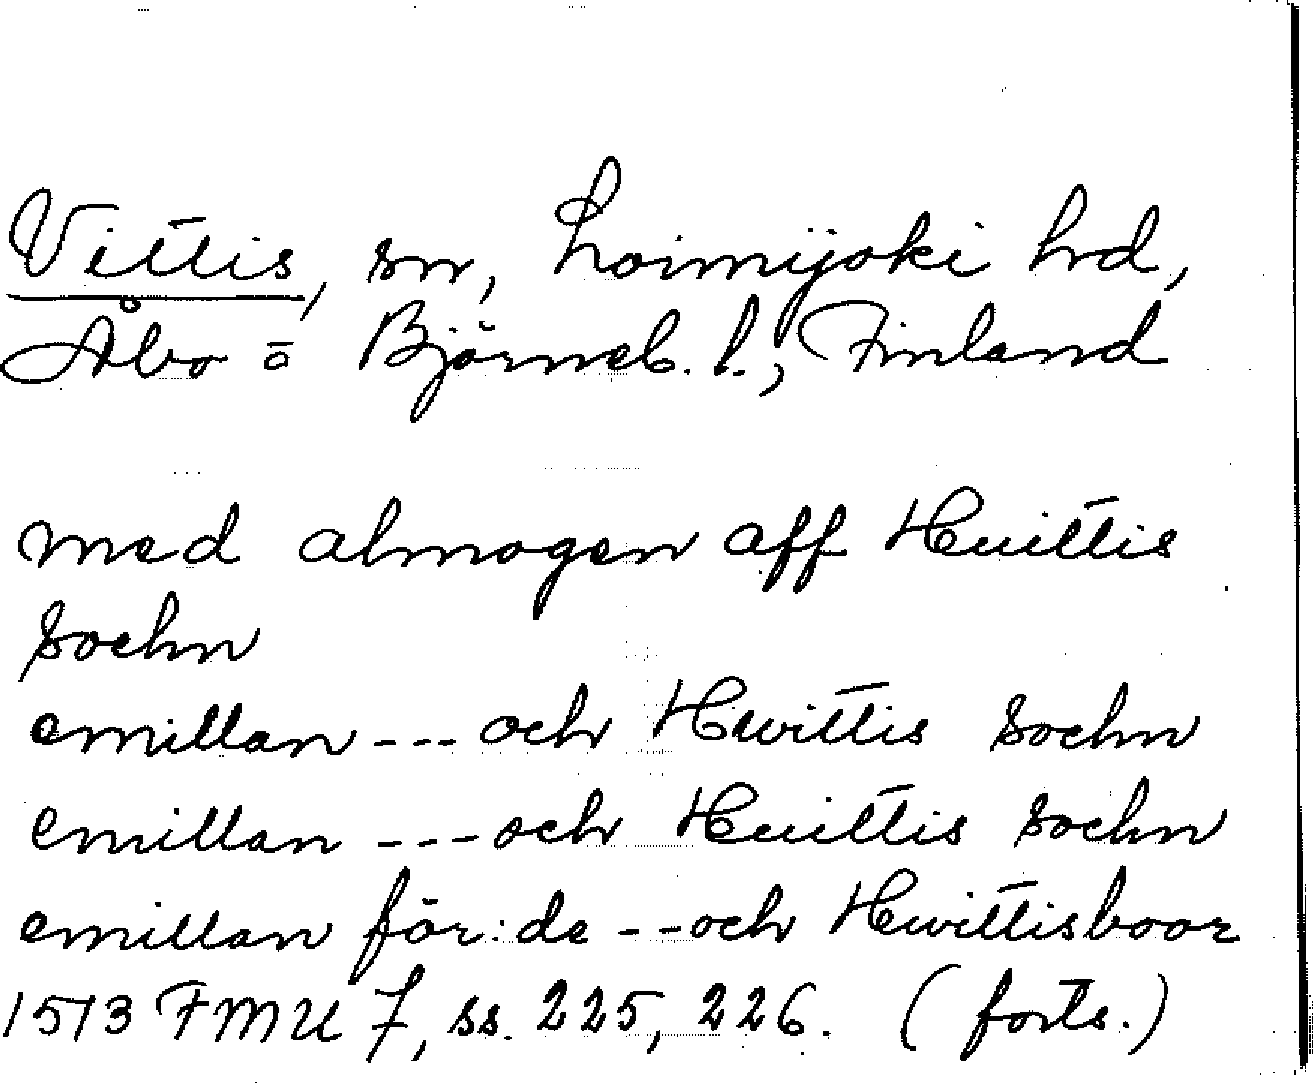 Vittis, sn, Loimijoki hd,
Åbo o Björneb. l., Finland
med almogen aff Huittis
sochn
emillan --- och Hwittis sochn
emillan --- och Huittis sochn
emillan för:de -- och Hwittisboor
1513 FMU 7, ss. 225, 226. (forts.)